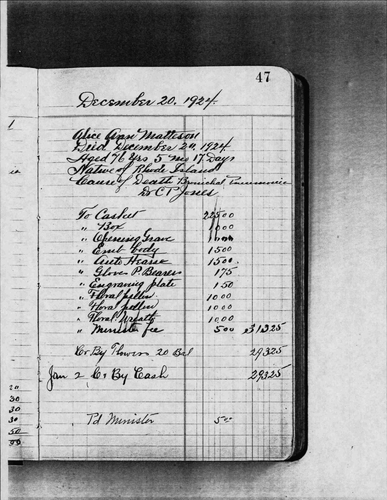 47
December 20. 1924.
Alice Ann Matteson
Died December 20, 1924
Aged 76 Yrs 5 mo 17 Days
Native of Rhode Island
Cause of Death Bronichal Pneumonia
Dr C P Jones
To Casket 225 00
" Box 10 00
" Opening Grave 10 00
" Emb body 15 00
" Auto Hearse 15 00
" Gloves P. Bearers 1 75
" Engraving plate 1 50
" Floral pillow 10 00
" Floral pillow 10 00
" Floral Wreath 10 00
" Minister fee 5 00 313 25
Cr By Flowers 20 Bal 293 25
Jan 2 Cr By Cash 293 25
Pd Minister 5 00
20
30
30
30
50
00